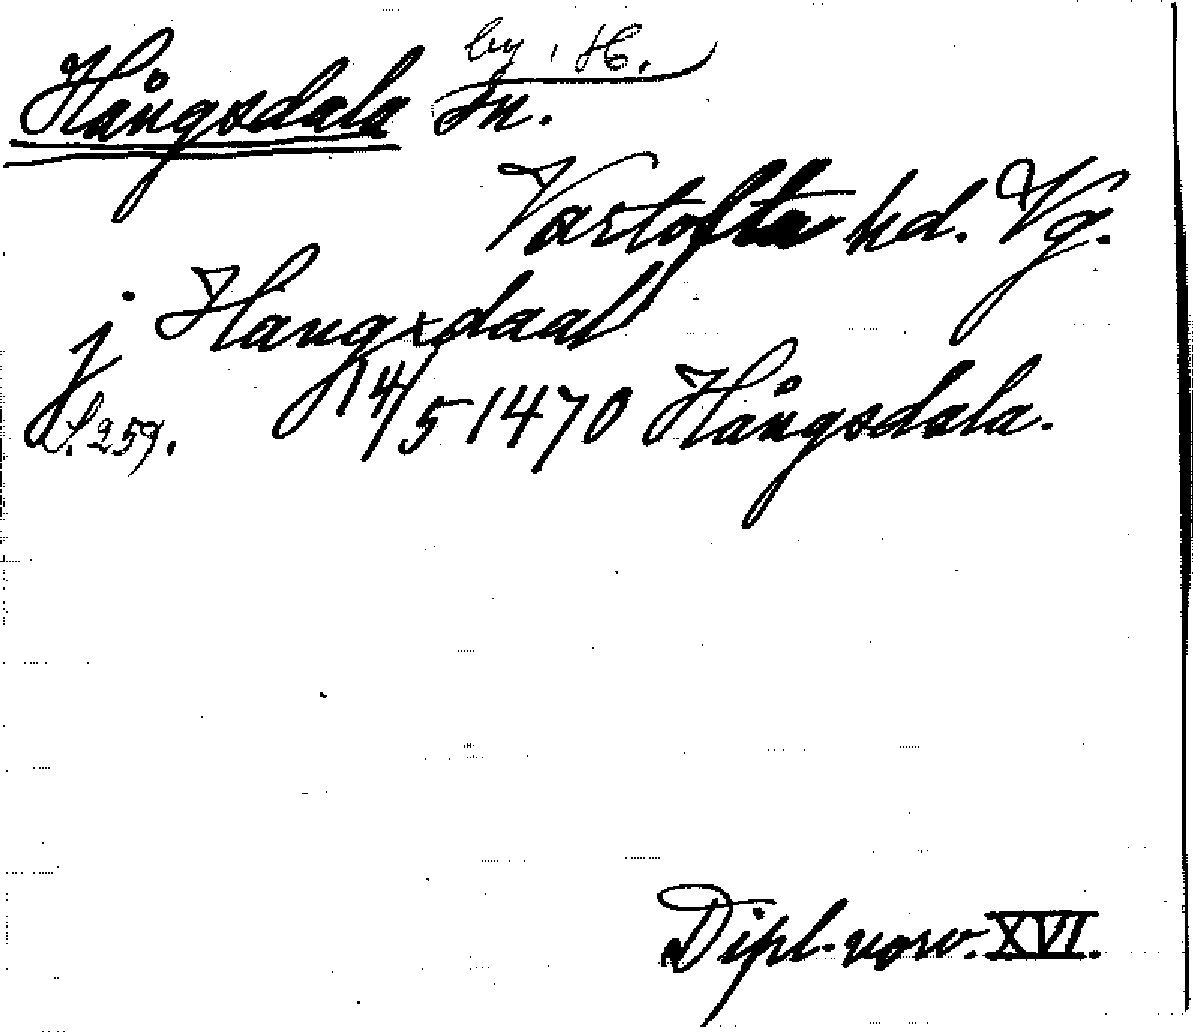 by i H.
Hångsdala sn.
Vartofta hd. Vg.
j Hangxdaal
S. 259. 14/5 1470 Hångsdala.
Dipl. norv. XVI.